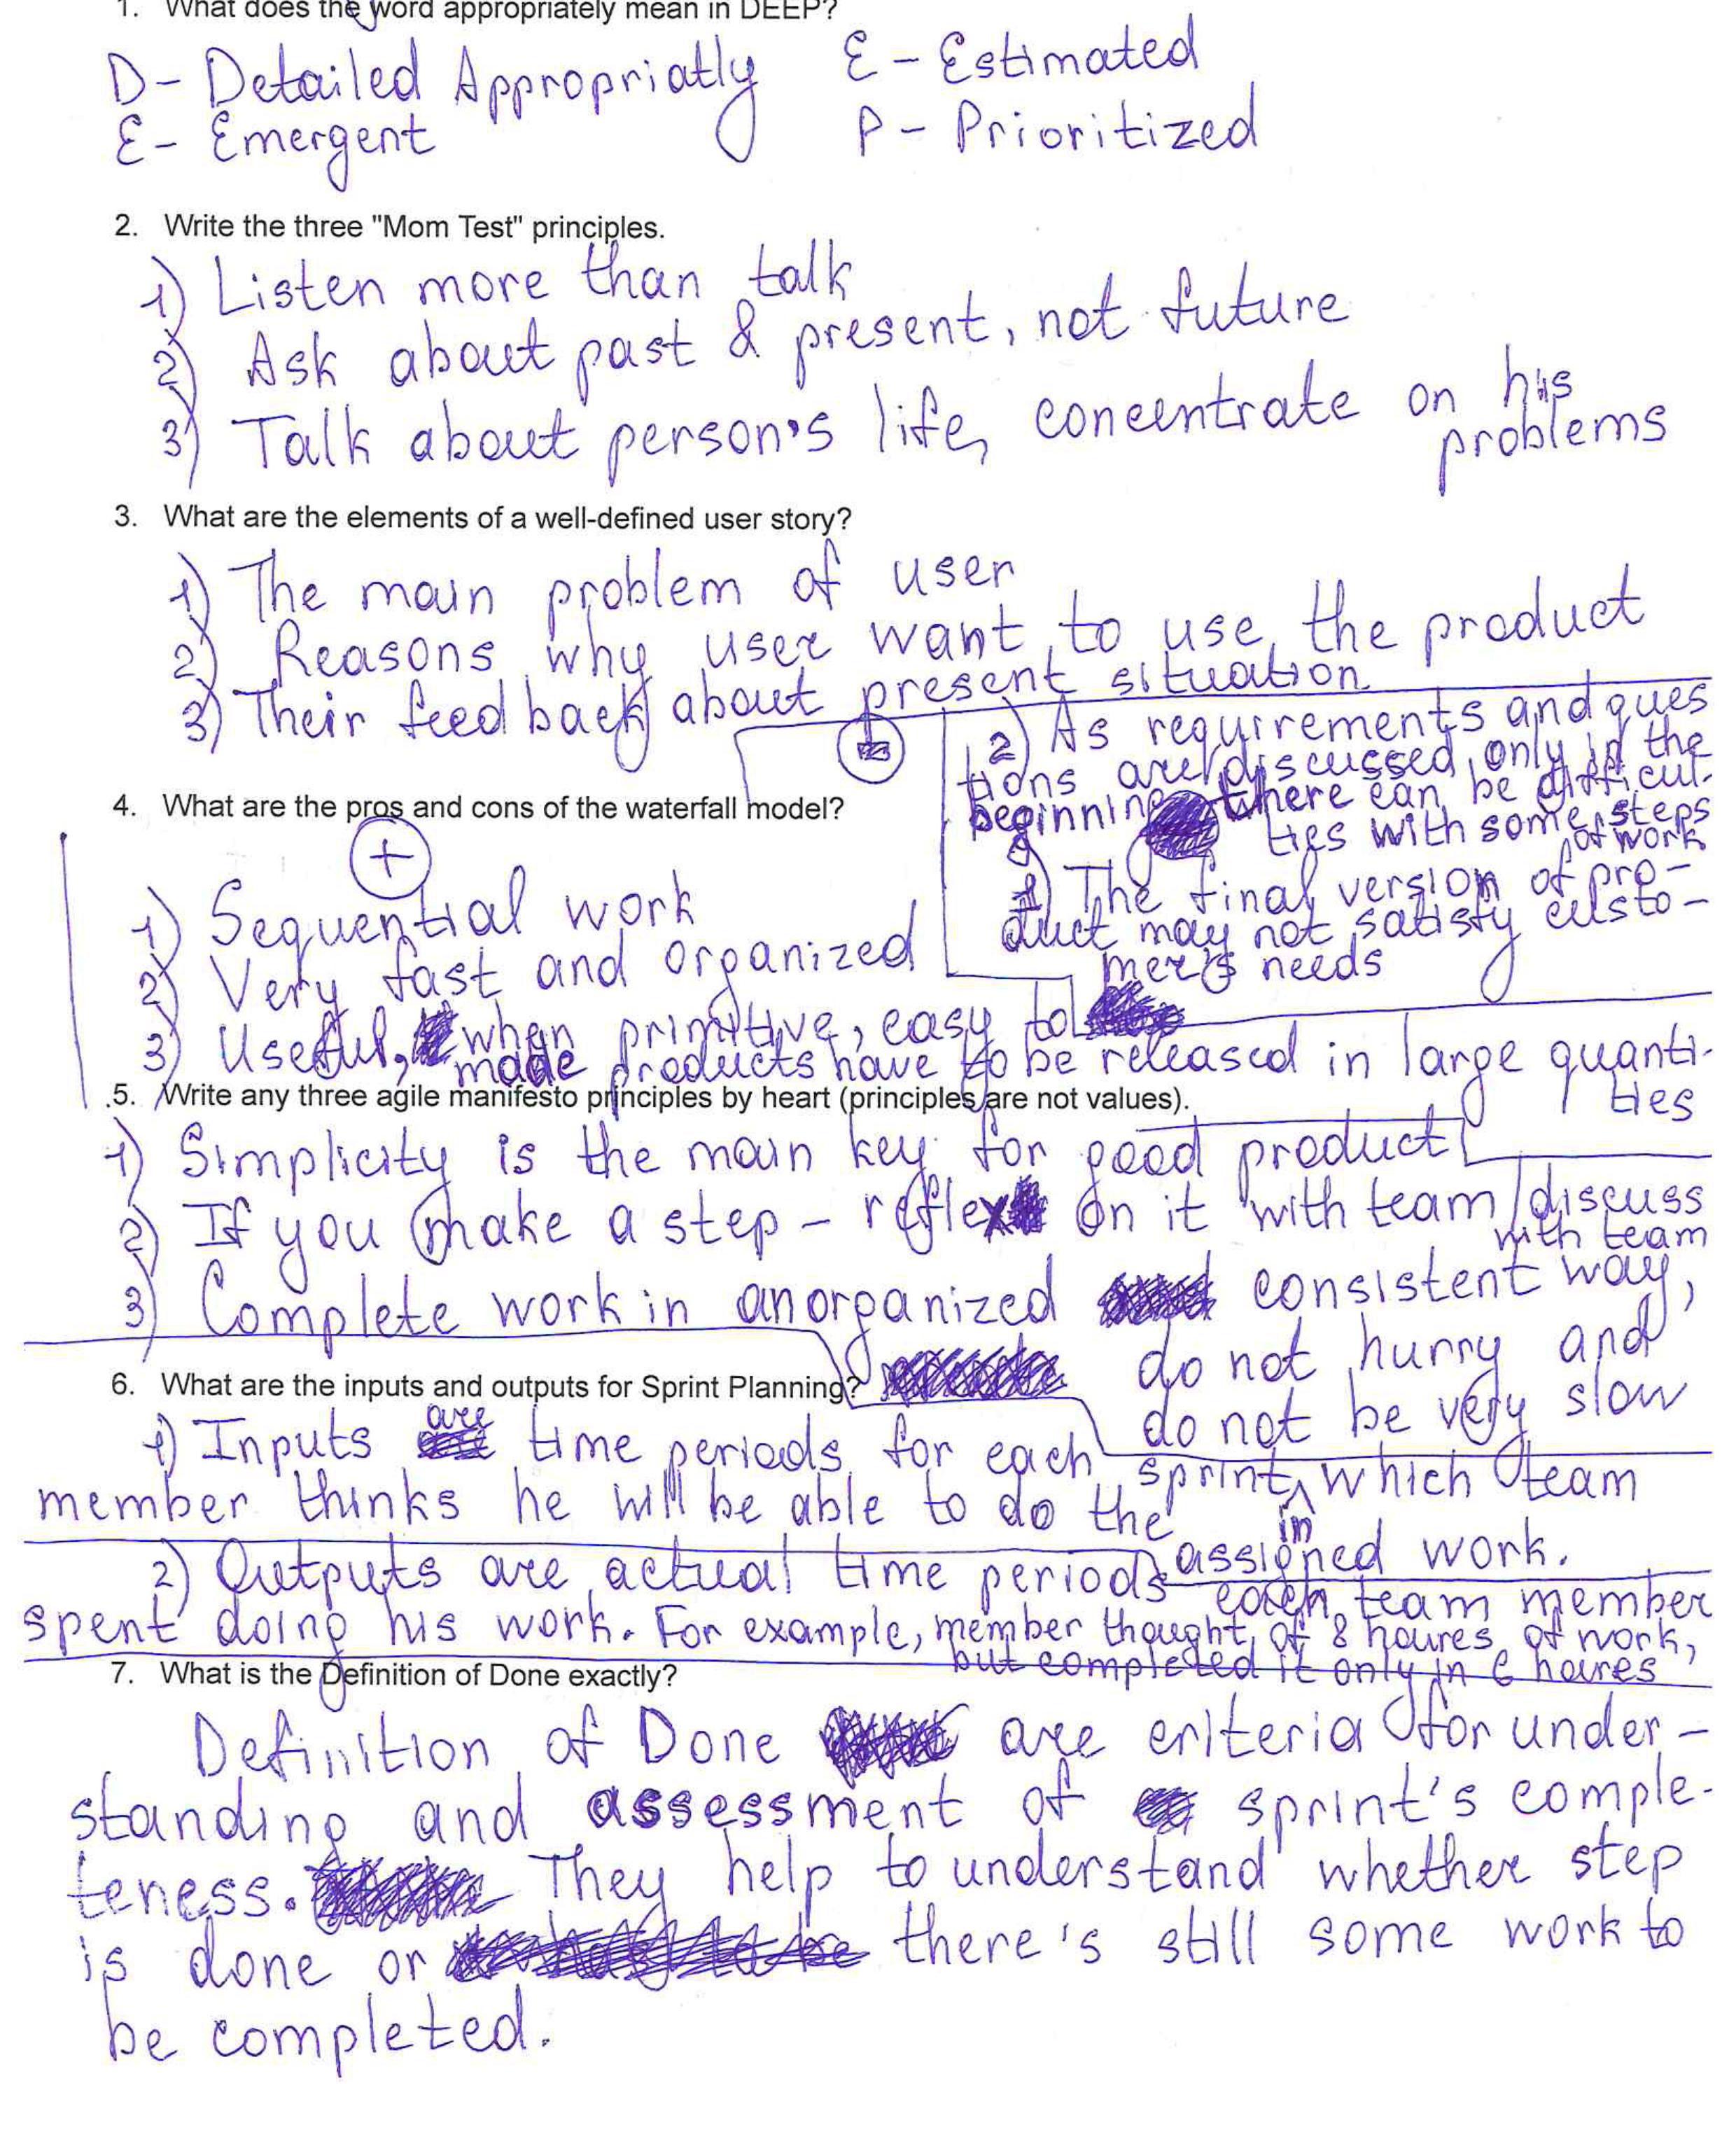 1. What does the word appropriately mean in DEEP?
D- Detailed Appropriatly
E- Emergent
E - Estimated
P - Prioritized
2. Write the three "Mom Test" principles.
1) Listen more than talk
2) Ask about past & present, not future
3) Talk about person's life, concentrate on his
problems
3. What are the elements of a well-defined user story?
1) The main problem of user
2) Reasons why user want to use the product
3) Their feedback about present situation
4. What are the pros and cons of the waterfall model?
+
1) Sequential work
2) Very fast and organized
3) Useful, when primitive, easy to
made products have to be released in large quanti-
ties
2) As requirements and ques
tions are discussed only in the
beginning there can be difficul-
ties with some steps
of work
1) The final version of pro-
duct may not satisfy custo-
mer's needs
5. Write any three agile manifesto principles by heart (principles are not values).
1) Simplicity is the main key for good product
2) If you make a step - reflex on it with team/discuss
with team
3) Complete work in an organized consistent way,
do not hurry and
do not be very slow
6. What are the inputs and outputs for Sprint Planning?
1) Inputs are time periods for each sprint, in which team
member thinks he will be able to do the
assigned work.
2) Outputs are actual time periods each team member
spent doing his work. For example, member thought of 8 houres of work,
but completed it only in 6 houres
7. What is the Definition of Done exactly?
Definition of Done are criteria for under-
standing and assessment of sprint's comple-
teness. They help to understand whether step
is done or there's still some work to
be completed.